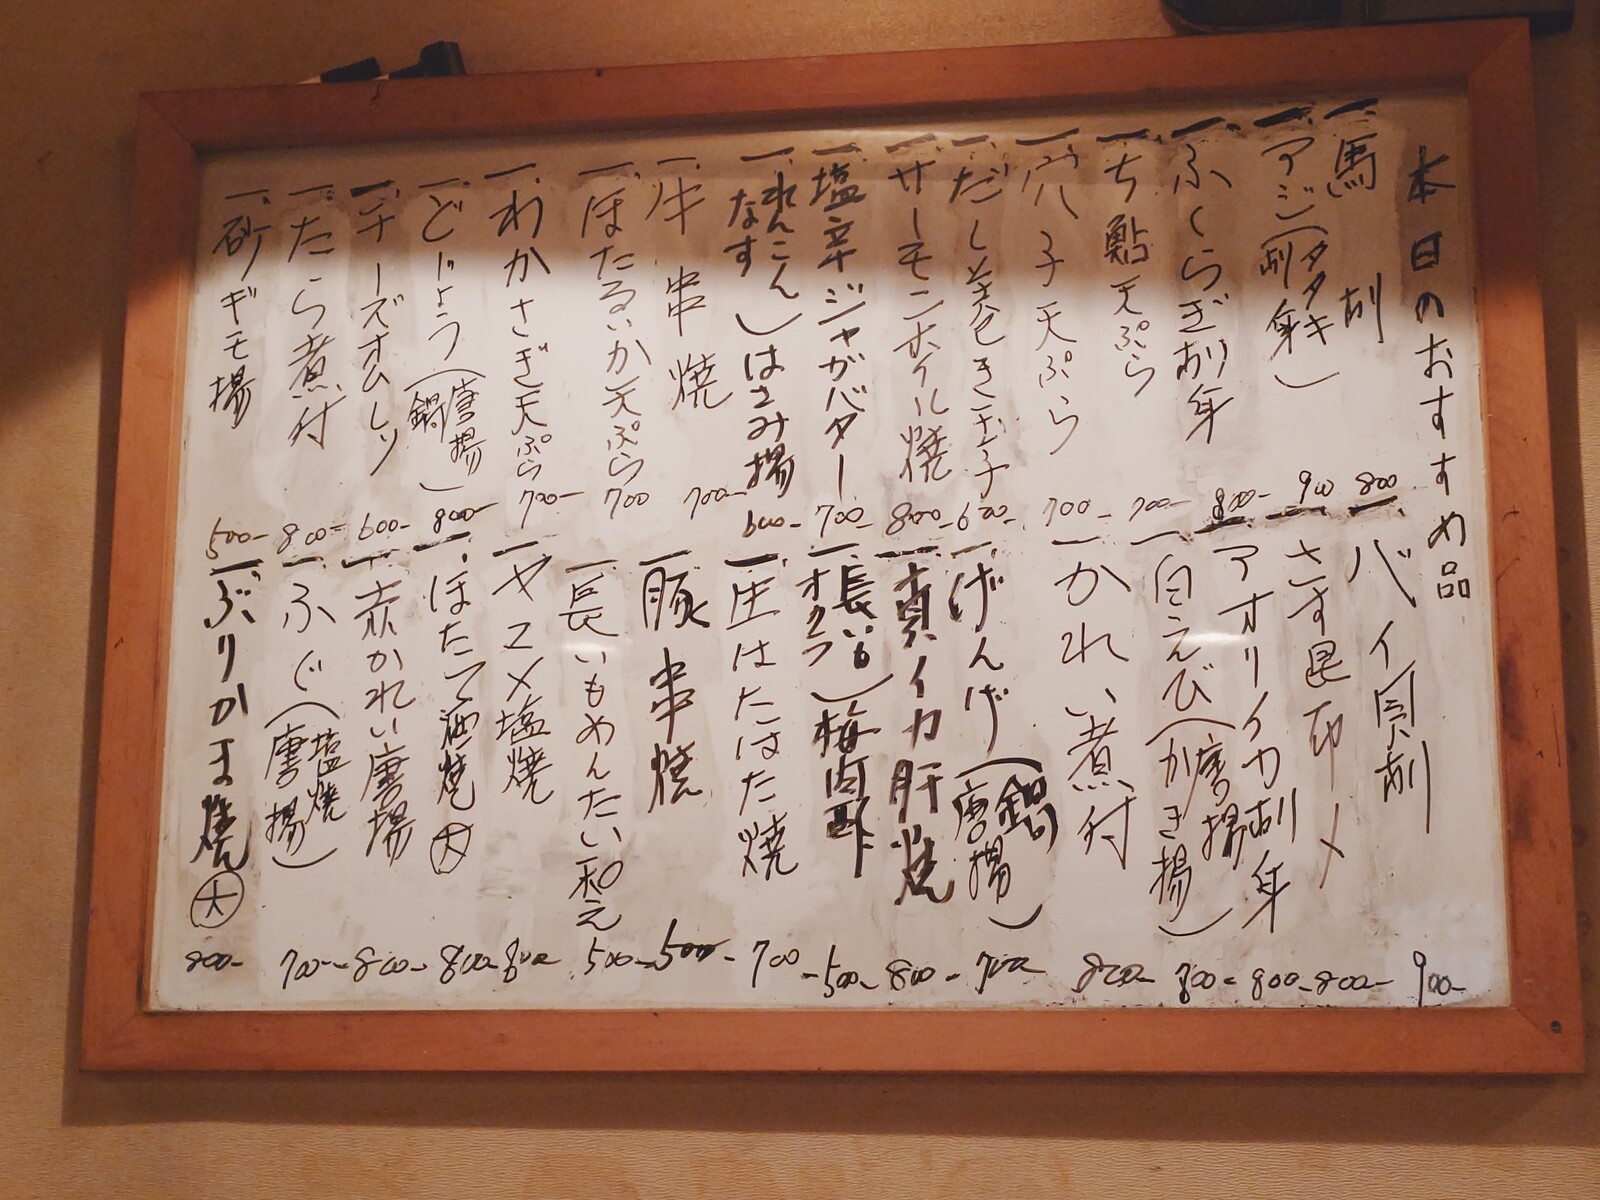 本日のおすすめ品
一、馬刺 800
一、アジ(タタキ 刺身) 900
一、ふくらぎ刺身 800-
一、ち鮎天ぷら 700-
一、穴子天ぷら 700-
一、だし巻き玉子 600-
一、サーモンホイル焼 800-
一、塩辛ジャガバター 700-
一、れんこん なす)はさみ揚 600-
一、牛串焼 700-
一、ほたるいか天ぷら 700
一、わかさぎ天ぷら 700-
一、どじょう(唐揚 鍋) 800-
一、チーズオムレツ 600-
一、たら煮付 800-
一、砂ギモ揚 500-
一、バイ貝刺 900-
一、さす昆布〆 800-
一、アオリイカ刺身 900-
一、白えび(唐揚 かき揚) 700-
一、かれい煮付 800-
一、げんげ(鍋 唐揚) 700-
一、真イカ肝焼 800-
一、長いも オクラ)梅肉酢 500-
一、生はたはた焼 700
一、豚串焼 500-
一、長いもめんたい和え 500-
一、ヤマメ塩焼 600-
一、ほたて酒焼 大 800-
一、赤かれい唐揚 800-
一、ふぐ(塩焼 唐揚) 700-
一、ぶりかま焼 大 800-